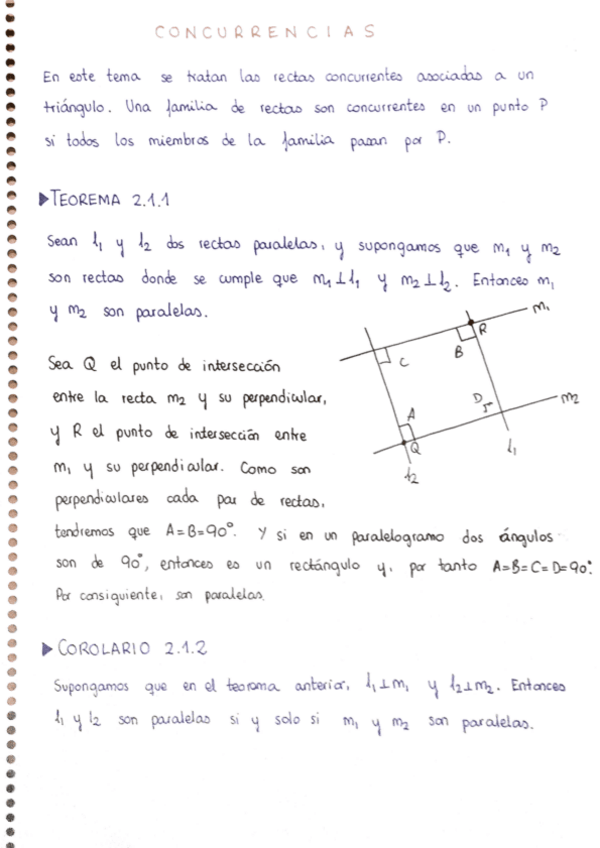 CONCURRENCIAS
En este tema se tratan las rectas concurrentes asociadas a un
triángulo. Una familia de rectas son concurrentes en un punto P
si todos los miembros de la familia pasan por P.
▶TEOREMA 2.1.1
Sean l₁ y l₂ dos rectas paralelas, y supongamos que m₁ y m₂
son rectas donde se cumple que m₁⊥l₁ y m₂⊥l₂. Entonces m₁
y m₂ son paralelas.
m₁
R
B
C
Sea Q el punto de intersección
entre la recta m₂ y su perpendicular,
D
m₂
A
y R el punto de intersección entre
Q
l₁
m₁ y su perpendicular. Como son
l₂
perpendiculares cada par de rectas,
tendremos que A=B=90°. Y si en un paralelogramo dos ángulos
son de 90°, entonces es un rectángulo y, por tanto A=B=C=D=90°.
Por consiguiente, son paralelas.
▶COROLARIO 2.1.2
Supongamos que en el teorema anterior, l₁⊥m₁ y l₂⊥m₂. Entonces
l₁ y l₂ son paralelas si y solo si m₁ y m₂ son paralelas.